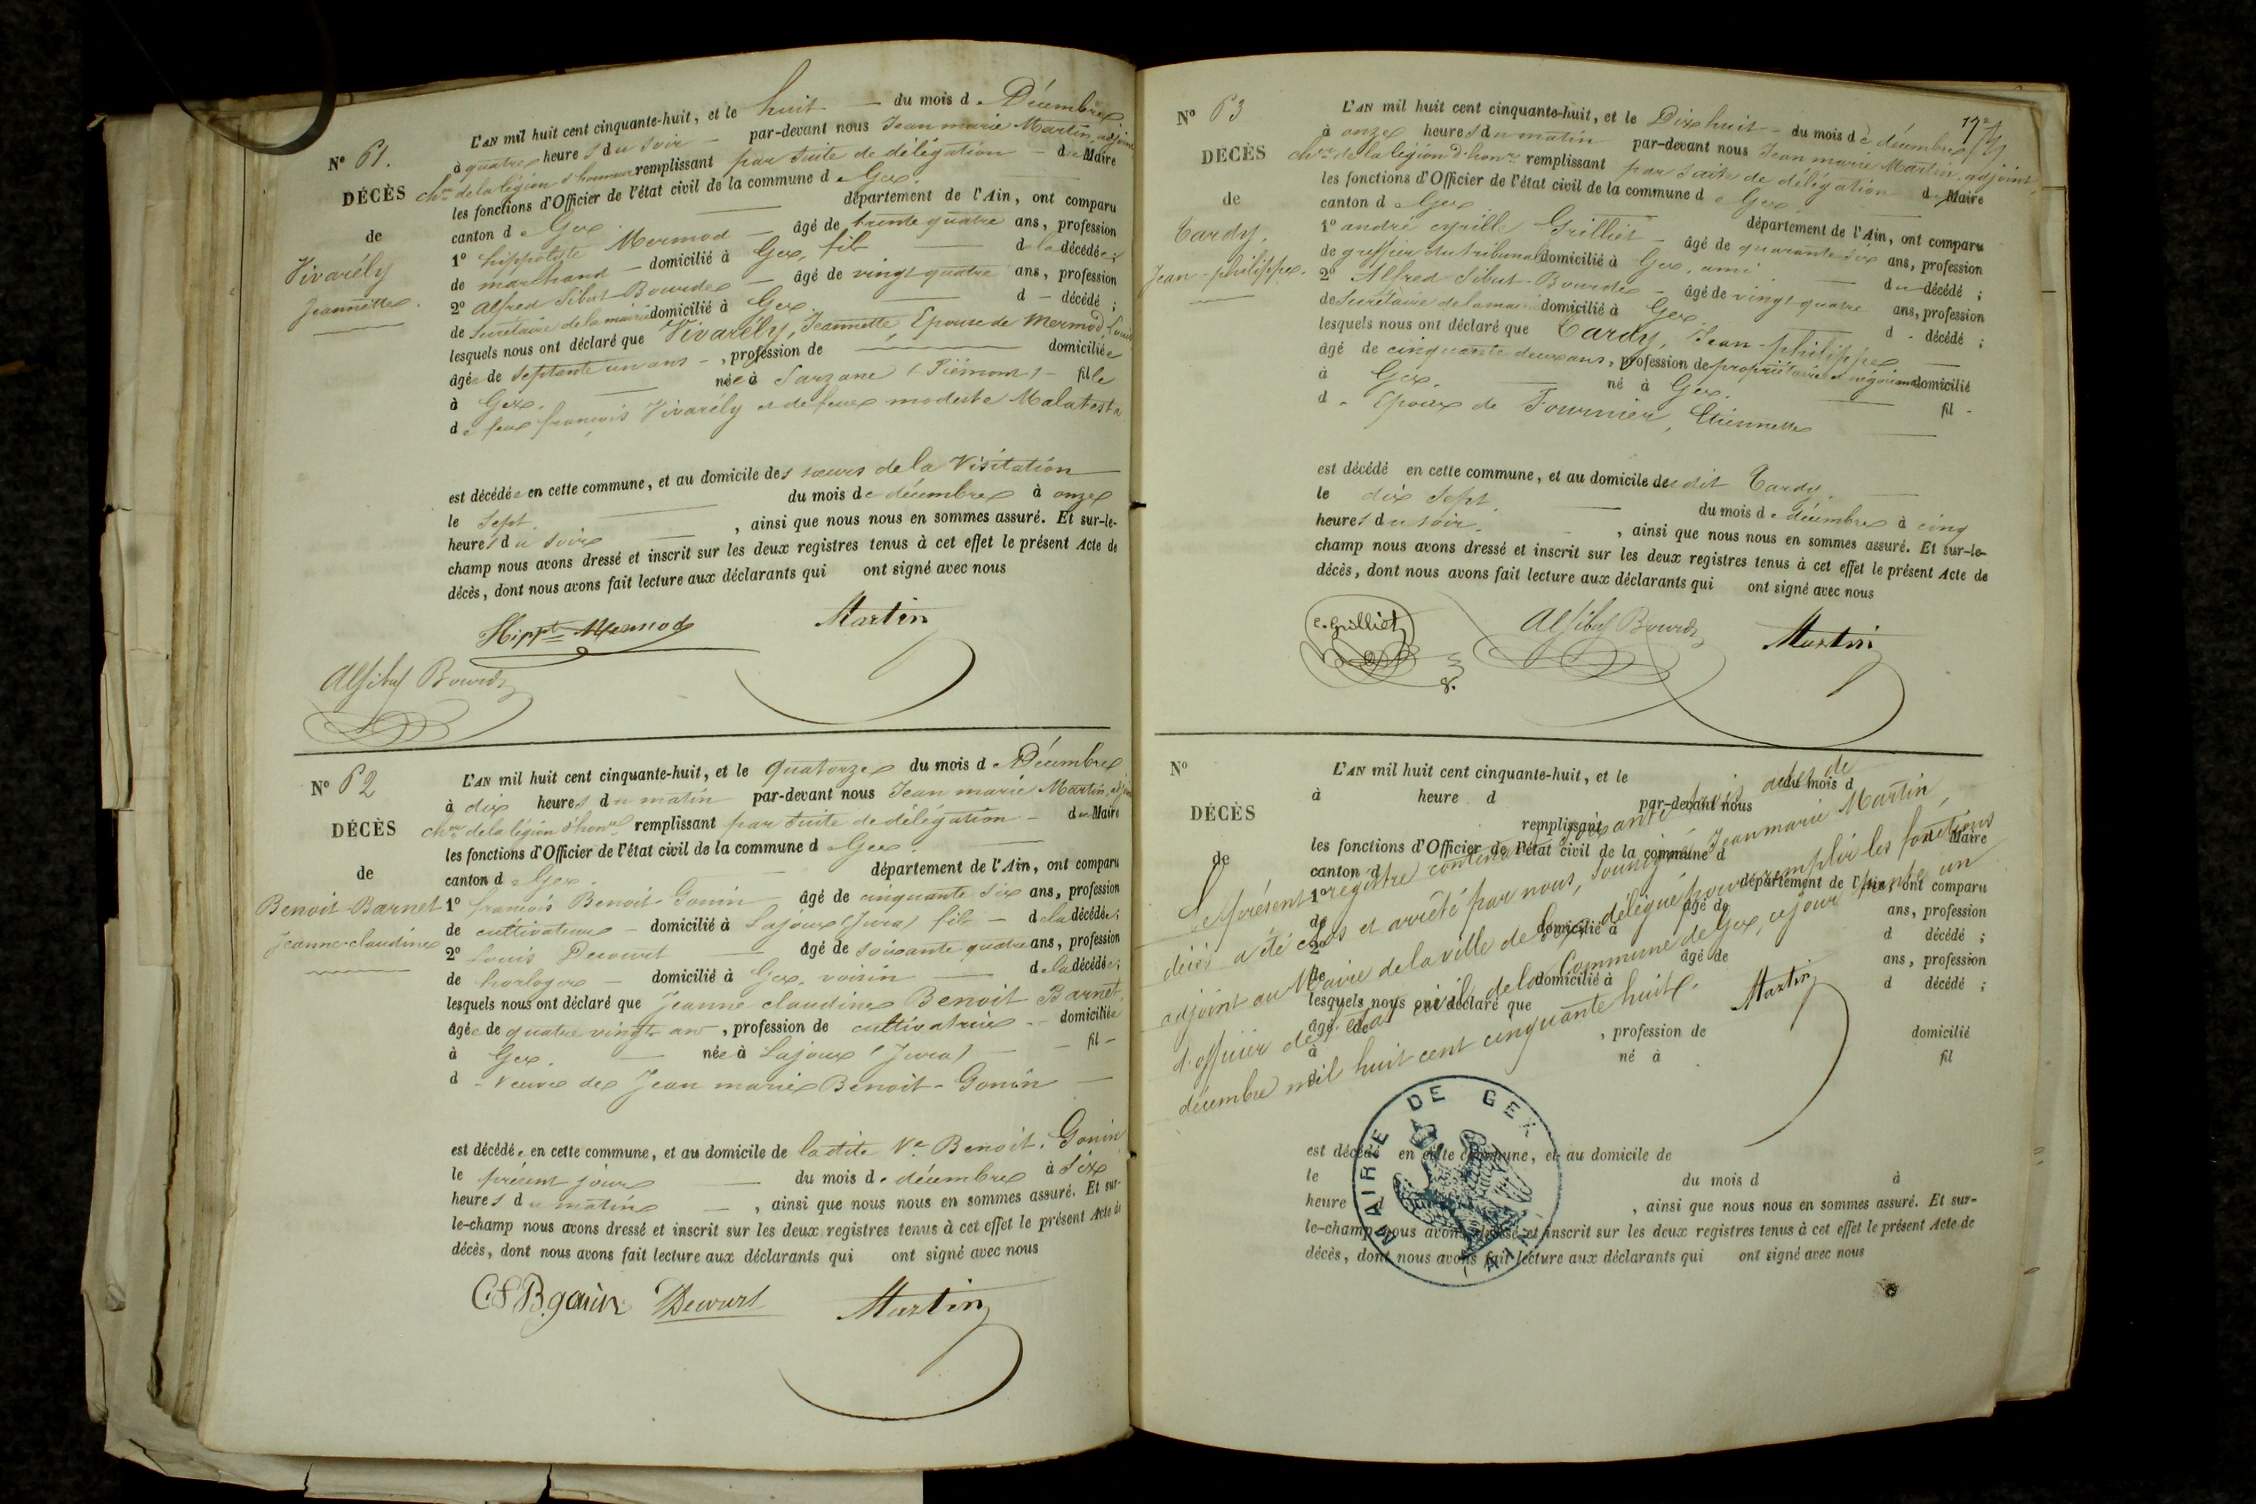 N° 61.
DÉCÈS
de
Vivarély
Jeannette.
L'AN mil huit cent cinquante-huit, et le huit du mois de Décembre
à quatre heures du soir par-devant nous Jean marie Martin, adjoint
ch.er de la légion d'honneur remplissant par suite de délégation du Maire
les fonctions d'Officier de l'état civil de la commune de Gex.
canton de Gex. département de l'Ain, ont comparu
1° hippolyte Mermod âgé de trente quatre ans, profession
de marchand domicilié à Gex, fils de la décédée;
2° alfred Sibut Bourde âgé de vingt quatre ans, profession
de Secrétaire de la mairie domicilié à Gex d décédé;
lesquels nous ont déclaré que Vivarély, Jeannette, Epouse de Mermod, Louis
âgée de septante un ans, profession de domiciliée
à Gex. née à Sarzane (Piémont) fille
de feu françois Vivarély et de feue modeste Malatesta
est décédée en cette commune, et au domicile des sœurs de la Visitation
le sept. du mois de décembre à onze
heures du soir, ainsi que nous nous en sommes assuré. Et sur-le-
champ nous avons dressé et inscrit sur les deux registres tenus à cet effet le présent Acte de
décès, dont nous avons fait lecture aux déclarants qui ont signé avec nous
Hippte Mermod Martin
Al Sibut Bourde
N° 62
DÉCÈS
de
Benoit-Barnet
Jeanne-claudine
L'AN mil huit cent cinquante-huit, et le quatorze du mois de Décembre
à dix heures du matin par-devant nous Jean marie Martin, adjoint
ch.er de la légion d'honr remplissant par suite de délégation du Maire
les fonctions d'Officier de l'état civil de la commune d Gex.
canton de Gex. département de l'Ain, ont comparu
1° françois Benoit-Gonin âgé de cinquante six ans, profession
de cultivateur domicilié à Lajoux (Jura) fils de la décédée;
2° Louis Decourt âgé de soixante quatre ans, profession
de horloger domicilié à Gex, voisin de la décédée;
lesquels nous ont déclaré que Jeanne claudine Benoit Barnet,
âgée de quatre vingts ans, profession de cultivatrice domiciliée
à Gex. née à Lajoux (Jura) fil
d Veuve de Jean marie Benoit-Gonin
est décédée en cette commune, et au domicile de la dite Ve Benoit-Gonin
le présent jour du mois de décembre à six
heures du matin, ainsi que nous nous en sommes assuré. Et sur-
le-champ nous avons dressé et inscrit sur les deux registres tenus à cet effet le présent Acte de
décès, dont nous avons fait lecture aux déclarants qui ont signé avec nous
Decourt Martin
N° 63
DÉCÈS
de
Tardy,
Jean-philippe.
L'AN mil huit cent cinquante-huit, et le Dix huit du mois de décembre
à onze heures du matin par-devant nous Jean marie Martin, adjoint,
ch.er de la légion d'honr remplissant par suite de délégation du Maire
les fonctions d'Officier de l'état civil de la commune de Gex.
canton de Gex département de l'Ain, ont comparu
1° andré cyrille Grilliet âgé de quarante six ans, profession
de greffier du tribunal domicilié à Gex, ami du décédé;
2° Alfred Sibut-Bourde âgé de vingt quatre ans, profession
de Secrétaire de la mairie domicilié à Gex d décédé;
lesquels nous ont déclaré que Tardy, Jean-philippe
âgé de cinquante deux ans, profession de propriétaire et négociant domicilié
à Gex. né à Gex. fil
d Epoux de Fournier, Etiennette
est décédé en cette commune, et au domicile du dit Tardy.
le dix sept. du mois de décembre à cinq
heures du soir., ainsi que nous nous en sommes assuré. Et sur-le-
champ nous avons dressé et inscrit sur les deux registres tenus à cet effet le présent Acte de
décès, dont nous avons fait lecture aux déclarants qui ont signé avec nous
C. Grilliet Al Sibut Bourde Martin
N°
DÉCÈS
de
L'AN mil huit cent cinquante-huit, et le du mois d
à heure d par-devant nous
remplissant Maire
les fonctions d'Officier de l'état civil de la commune d
canton d département de l'Ain, ont comparu
1° âgé de ans, profession
de domicilié à d décédé;
2° âgé de ans, profession
de domicilié à d décédé;
lesquels nous ont déclaré que
âgé de, profession de domicilié
à né à fil
d
Le présent registre contenant soixante trois actes de
décès a été clos et arrêté par nous, soussigné Jean marie Martin,
adjoint au Maire de la ville de Gex, délégué pour remplir les fonctions
d'officier de l'état civil de la Commune de Gex, ce jour trente un
décembre mil huit cent cinquante huit.
Martin
MAIRIE DE GEX
AIN
est décédé en cette commune, et au domicile de
le du mois d à
heure, ainsi que nous nous en sommes assuré. Et sur-
le-champ nous avons dressé et inscrit sur les deux registres tenus à cet effet le présent Acte de
décès, dont nous avons fait lecture aux déclarants qui ont signé avec nous